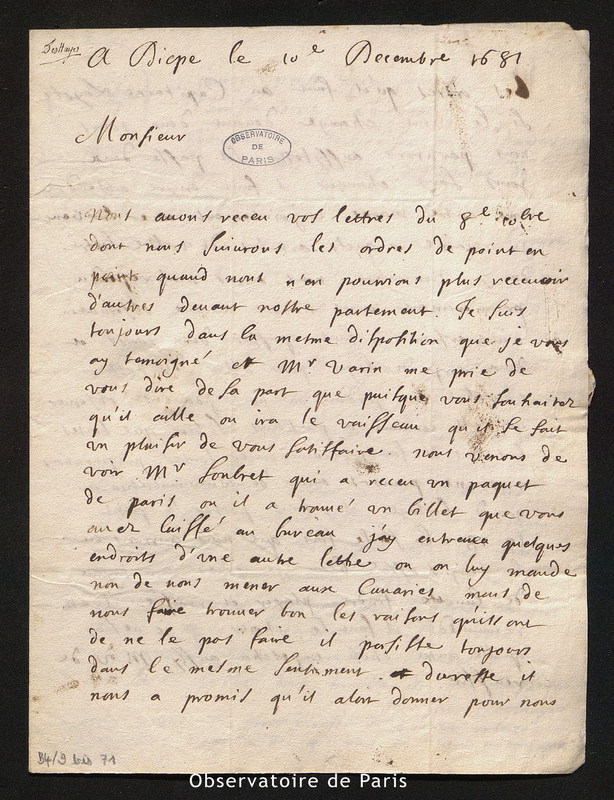 DesHayes
A Diepe le 10e Decembre 1681
Monsieur
OBSERVATOIRE
DE
PARIS
Nous auons receu vos lettres du 8e
dont nous suiurons les ordres de point en
point quand nous n'en pourrions plus receuoir
d'autres deuant nostre partement. Je suis
toujours dans la mesme disposition que je vous
ay temoigné et Mr Varin me prie de
vous dire de sa part que puisque vous souhaitez
qu'il aille ou ira le vaisseau qu'il se fait
vn plaisir de vous satisfaire. nous venons de
voir Mr qui a receu vn paquet
de paris ou il a trouué vn billet que vous
auez laissé au bureau j'ay entreueu quelques
endroits d'vne autre lettre ou on luy mande
non de nous mener aux Canaries mais de
nous faire trouuer bon les raisons qu'ils ont
de ne le pas faire il persiste toujours
dans le mesme sentiment. et dureste il
nous a promis qu'il aloit donner pour nous
B4/9 bis 71
Observatoire de Paris